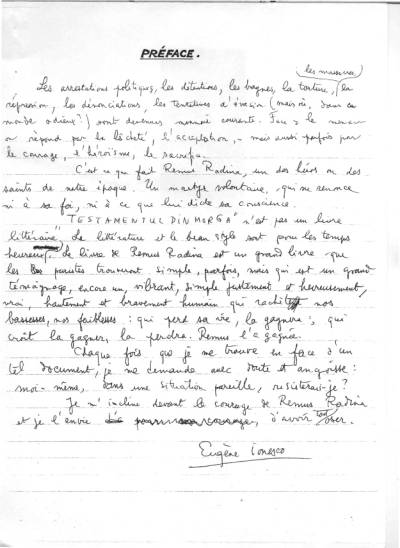 PRÉFACE.
les massacres
Les arrestations politiques, les détentions, les bagnes, la torture, la
répression, les dénonciations, les tentatives d'évasion (mais où, dans ce
monde odieux?) sont devenues monnaie courante. Face à la
on répond par la lâcheté, l'acceptation, mais aussi parfois par
le courage, l'héroïsme, le sacrifice.
C'est ce que fait Remus Radina, un des héros ou des
saints de notre époque. Un martyr volontaire, qui ne renonce
ni à sa foi, ni à ce que lui dicte sa conscience.
"TESTAMENTUL DIN MORGA" n'est pas un livre
littéraire. La littérature et le beau style sont pour les temps
heureux. Le livre de Remus Radina est un grand livre que
les puristes trouveront simple, parfois, mais qui est un grand
témoignage, encore un, vibrant, simple justement et heureusement,
vrai, hautement et bravement humain qui rachète nos
bassesses, nos faiblesses: qui perd sa vie, la gagnera; qui
croit la gagner, la perdra. Remus l'a gagnée.
Chaque fois que je me trouve en face d'un
tel document, je me demande avec doute et angoisse:
moi-même, dans une situation pareille, résisterais-je?
Je m'incline devant le courage de Remus Radina
et je l'envie d'avoir tout osé.
Eugène Ionesco